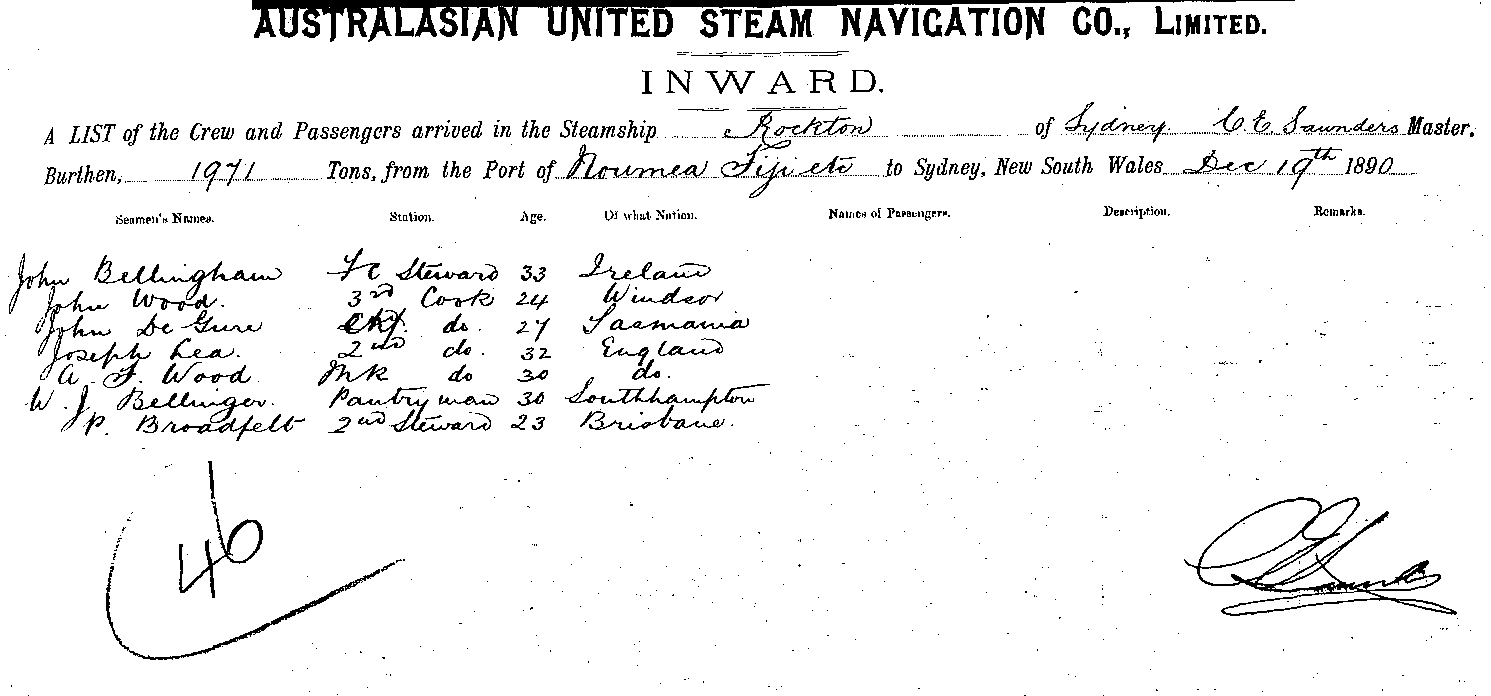 AUSTRALASIAN UNITED STEAM NAVIGATION CO., LIMITED.
INWARD.
A LIST of the Crew and Passengers arrived in the Steamship Rockton of Sydney C. E. Saunders Master,
Burthen, 1971 Tons, from the Port of Noumea Fiji etc to Sydney, New South Wales Dec 19th 1890
Seamen's Names. Station. Age. Of what Nation. Names of Passengers. Description. Remarks.
John Bellingham Steward 33 Ireland
John Wood. 3rd Cook 24 Windsor
John De Gure do. 27 Tasmania
Joseph Lea. 2nd do. 32 England
A. F. Wood do 30 do.
W. J. Bellinger. Pantryman 30 Southhampton
P. Broadfelt 2nd Steward 23 Brisbane.
46